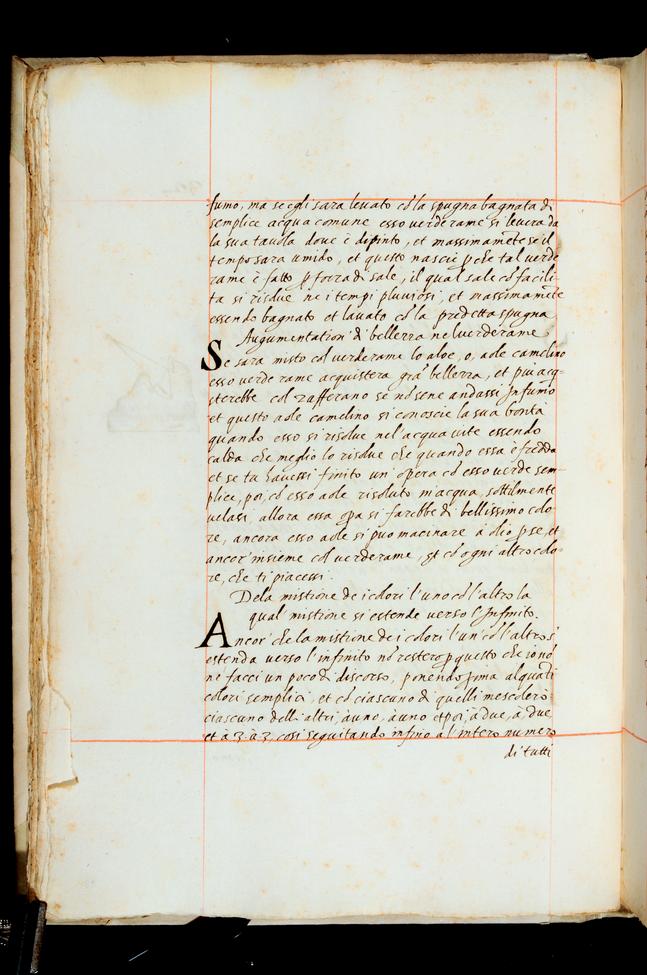 fumo, ma se egli sara levato cō la spugna bagnata di
semplice acqua comune esso verderame si levera da
la sua tavola dove è dipinto, et massimamēte se il
tempo sara umido, et questo nascie p che tal verde
rame è fatto p forza di sale, il qual sale cō facili-
ta si risolue ne i tempi pluviosi, et massimamēte
essendo bagnato et lavato cō la predetta spugna
Augumentation' di bellezza nel verderame
Se sara misto col verderame lo aloe, o, aole camelino
esso verde rame acquistera grā bellezza, et piu acq-
sterebbe col zafferano se nō sene andassi Jn fumo
et questo aole camelino si conoscie la sua bontà
quando esso si risolue nel'acqua vite essendo
calda che meglio lo risolue che quando essa è fredda
et se tu havessi finito un' opera cō esso verde sem-
plice, poi cō esso aole risoluto in acqua, sottilmente
velasi, allora essa opa si farebbe di bellissimo colo
re, ancora esso aole si puo macinare à olio p se, et
ancor' insieme col verderame, et cō ogni altro colo-
re, che ti piacessi.
Dela mistione de i colori l'uno cō l'altro la
qual mistione si estende verso l'Jnfinito.
Ancor' che la mistione de i colori l'un' cō l'altro si
estenda verso l'infinito nō resterò p questo che io nō
ne facci un poco di discorso, ponendo prima alquāti
colori semplici, et cō ciascuno di quelli mescolerò
ciascuno delli altri, à uno, à uno et poi, à due, à due
et à 3. à 3, cosi seguitando infino à l'intero numero
di tutti